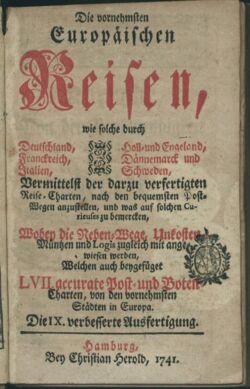 Die vornehmsten
Europäischen
Reisen,
wie solche durch
Deutschland,
Franckreich,
Italien,
Holl- und Engeland,
Dännemarck und
Schweden,
Vermittelst der darzu verfertigten
Reise-Charten, nach den bequemsten Post-
Wegen anzustellen, und was auf solchen Cu-
rieuses zu bemercken,
Wobey die Neben-Wege, Unkosten,
Müntzen und Logis zugleich mit ange-
wiesen werden,
Welchen auch beygefüget
LVII. accurate Post- und Boten-
Charten, von den vornehmsten
Städten in Europa.
Die IX. verbesserte Ausfertigung.
Hamburg,
Bey Christian Herold, 1741.